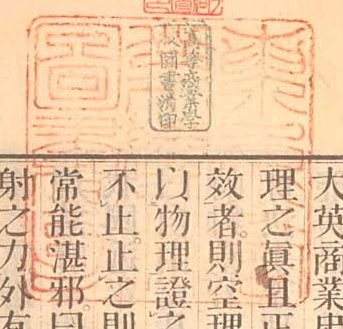 高等商業學
校圖書消印
大英商業史
理之眞且正
效者。則空理
以物理證之
不止。止之則
常能湛邪。曰
射之力外有